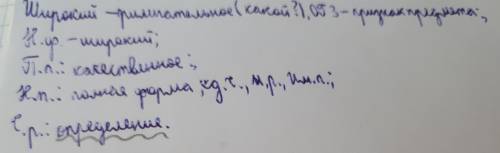 Широкий – прилагательное (какой?), ОГЗ – признак предмета;
Н.ф. – широкий;
П.п.: качественное;
Н.п.: полная форма, ед.ч., м.р., Им.п.;
С.р.: определение.